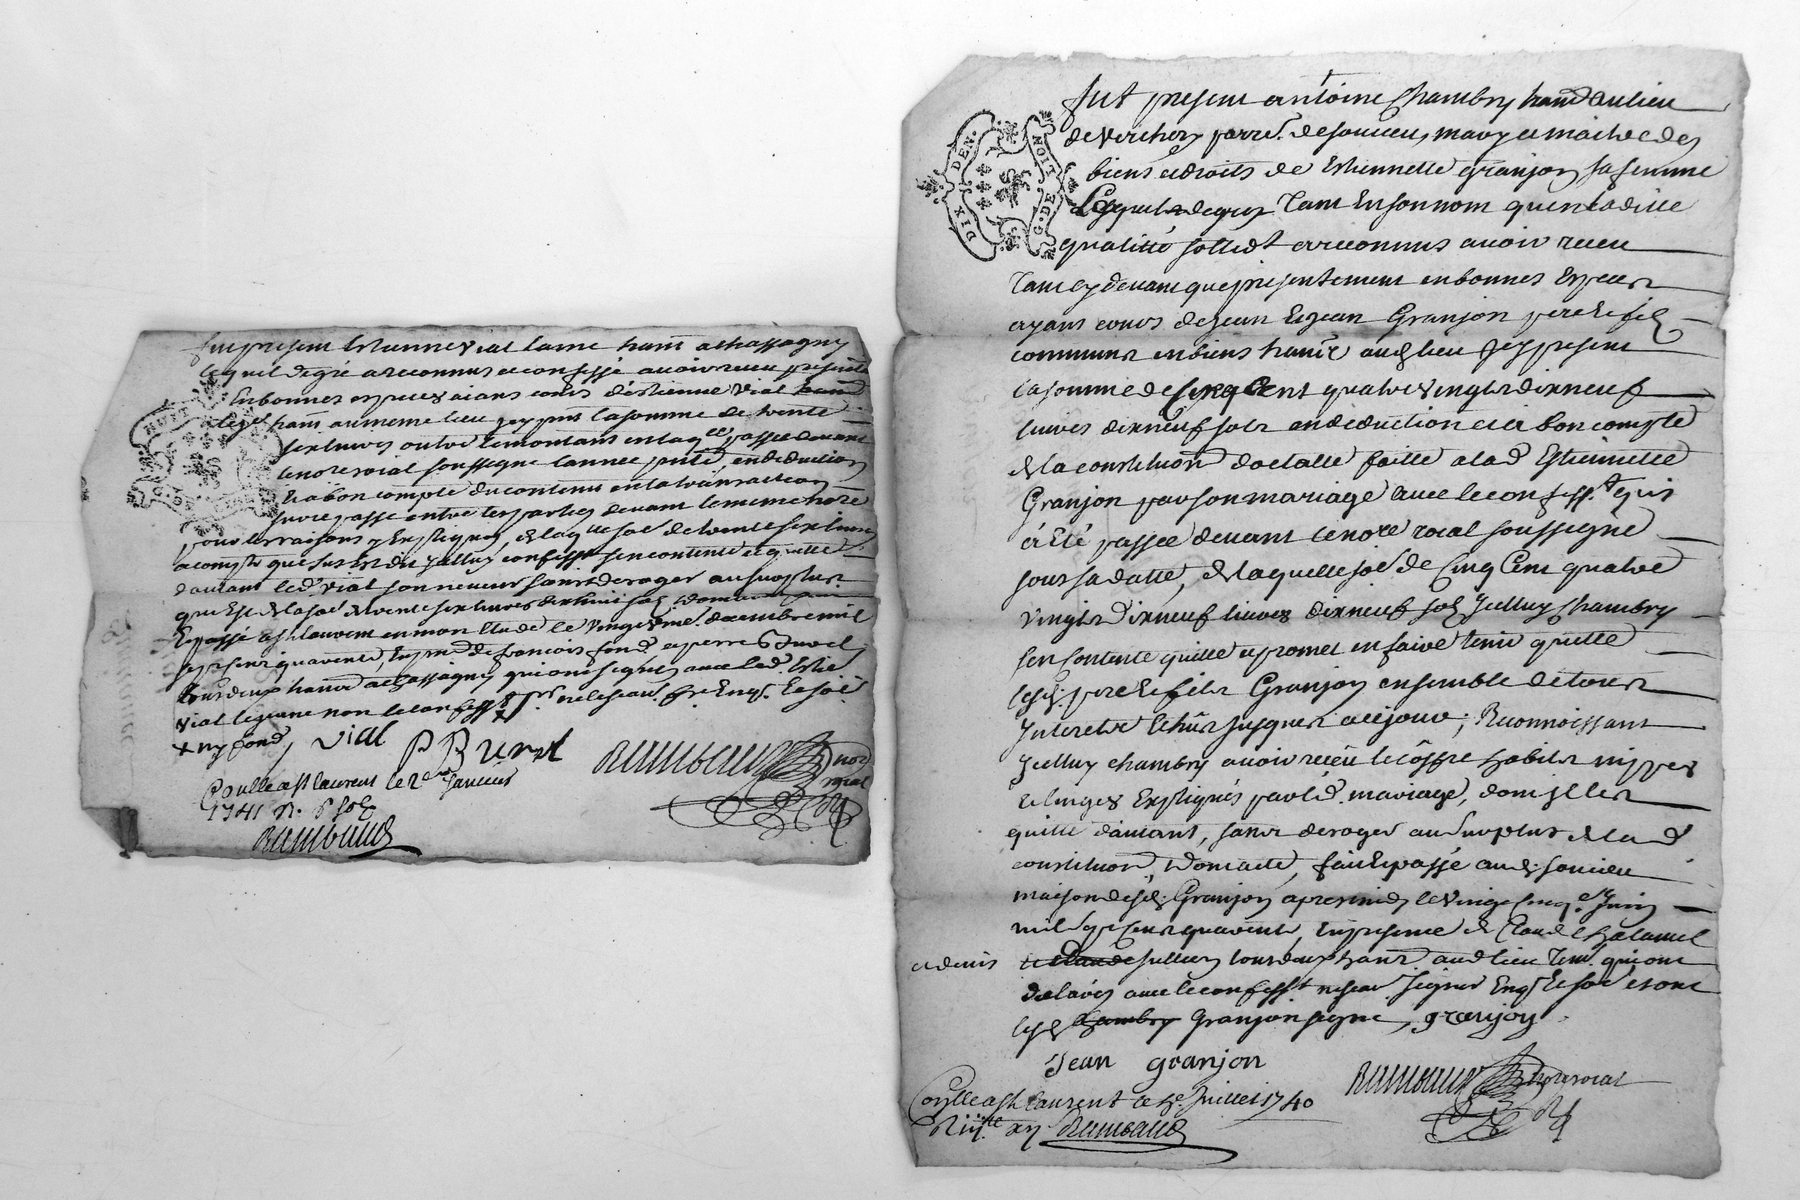 fut present Estienne Vial laine hant a Chassagny
lequel de gre a reconnu et confessé avoir receu presentt
en bonnes especes aians cours d'estienne Vial
hant au meme lieu icy pnt la somme de trente
six livres outre le montant en la qtte passée devant
le nore roial soussigne l'annee pnte, en deduction
et a bon compte du contenu en la transaction
passe entre les parties devant le meme nore
pour les raisons y expliquées, de laqlle so͞e de trente six livres
a compte que dessus led jcelluy confesst s'en contente et quitte
d'autant led. Vial son neveu sans deroger au surplus
qui est de la so͞e de trente six livres dix huit sols, dont acte
et passé a St laurent en mon etude le vingt
sept cent quarente, en pnce de francois fond et pierre Brunel
tous deux hants a Chassagny qui ont signé avec led. Estie
Vial le jeune non le confesst pr ne le scavoir de ce enqs. et so͞é
vial P Brunel
Rambaud nore
roial
Conllé a St laurent le 2e Janvier
1741 R. 6 sols
Rambaud
DIX DEN.
G. DE LION
fut present antoine Chambry hant au lieu
de Verchery parre. de soucieu, mary et maitre des
biens et droits de Estiennette Granjon sa femme
Lequel de gres tant en son nom qu'en laditte
qualitté sollidt a reconnus avoir receu
tant cy devant que presentement en bonnes especes
ayans cours de Jean et Jean Granjon pere et fils
communs en biens hants aud lieu jcy present
la somme de Cinq Cent quatre vingts dix neuf
livres dix neuf sols en deduction et a bon compte
de la constituon dotalle faitte a lad Estiennette
Granjon par son mariage avec le confesst qui
a été passée devant le nore roial soussigne
sous sa datte, de laquelle so͞e de Cinq Cent quatre
vingts dix neuf livres dix neuf sols jcelluy Chambry
s'en contente quitte et promet en faire tenir quitte
lesd. pere et fils Granjon ensemble de tous
Interets echus jusques a ce jour; Reconnoissant
jcelluy chambry avoir receu le coffre habits nippes
et linges expliqués par led. mariage, dont jl les
quitte d'autant, sans deroger au surplus de lad
constituon, dont acte, fait et passé aud. soucieu
maison desd. Granjon apres midy le vingt cinqe Juin
mil sept cent quarente, en presence de Claude Chalamel
et denis Jullien tous deux hants aud lieu tem. qui ont
declarés avec le confesst ne scavoir signer enqs et so͞e et ont
lesd Chambry Granjon signe, granjon
Jean granjon
Rambaud nore roial
Conlle a St laurent le 5e Juillet 1740
Rambaud